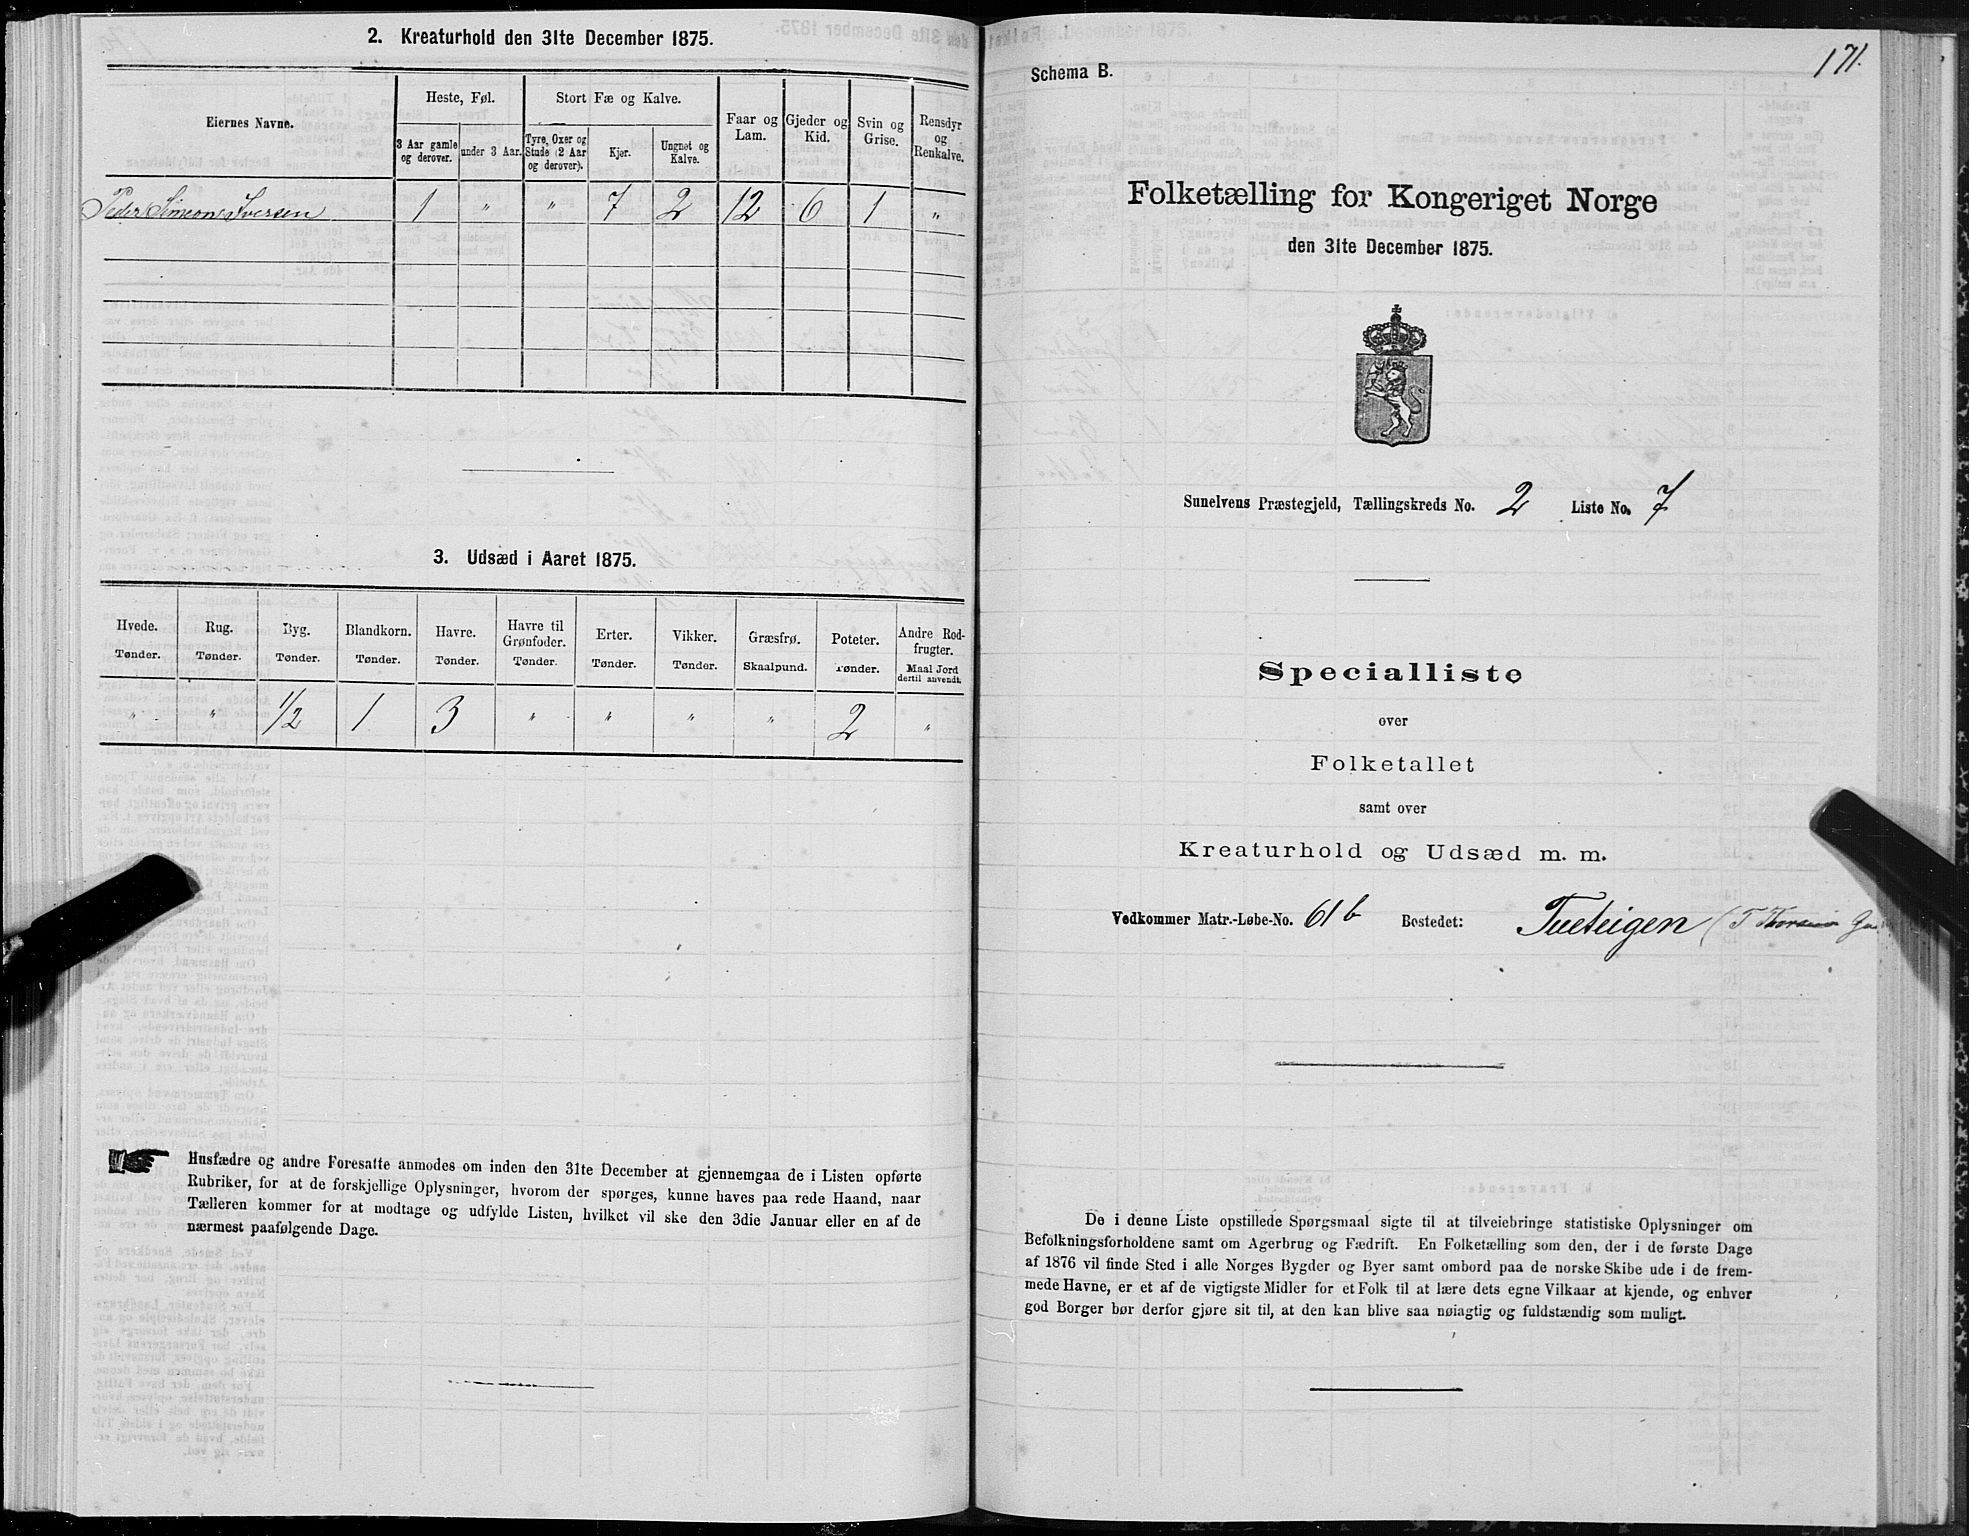 2. Kreaturhold den 31te December 1875.
Eiernes Navne.
Heste, Føl.
Stort Fæ og Kalve.
Faar og Lam.
Gjeder og Kid.
Svin og Grise.
Rensdyr og Renkalve.
3 Aar gamle og derover.
under 3 Aar.
Tyre, Oxer og Stude (2 Aar og derover).
Kjør.
Ungnøt og Kalve.
Peder Simeon Iversen 1 " " 7 2 12 6 1 "
3. Udsæd i Aaret 1875.
Hvede. Rug. Byg. Blandkorn. Havre. Havre til Grønfoder. Erter. Vikker. Græsfrø. Poteter. Andre Rodfrugter.
Tønder. Tønder. Tønder. Tønder. Tønder. Tønder. Tønder. Tønder. Skaalpund. Tønder. Maal Jord dertil anvendt.
" " 1/2 1 3 " " " " 2 "
Husfædre og andre Foresatte anmodes om inden den 31te December at gjennemgaa de i Listen opførte
Rubriker, for at de forskjellige Oplysninger, hvorom der spørges, kunne haves paa rede Haand, naar
Tælleren kommer for at modtage og udfylde Listen, hvilket vil ske den 3die Januar eller en af de
nærmest paafølgende Dage.
171.
Schema B.
Folketælling for Kongeriget Norge
den 31te December 1875.
Sunelvens Præstegjeld, Tællingskreds No. 2 Liste No. 7
Specialliste
over
Folketallet
samt over
Kreaturhold og Udsæd m. m.
Vedkommer Matr.-Løbe-No. 61b Bostedet: Tueteigen (T
De i denne Liste opstillede Spørgsmaal sigte til at tilveiebringe statistiske Oplysninger om
Befolkningsforholdene samt om Agerbrug og Fædrift. En Folketælling som den, der i de første Dage
af 1876 vil finde Sted i alle Norges Bygder og Byer samt ombord paa de norske Skibe ude i de frem-
mede Havne, er et af de vigtigste Midler for et Folk til at lære dets egne Vilkaar at kjende, og enhver
god Borger bør derfor gjøre sit til, at den kan blive saa nøiagtig og fuldstændig som muligt.